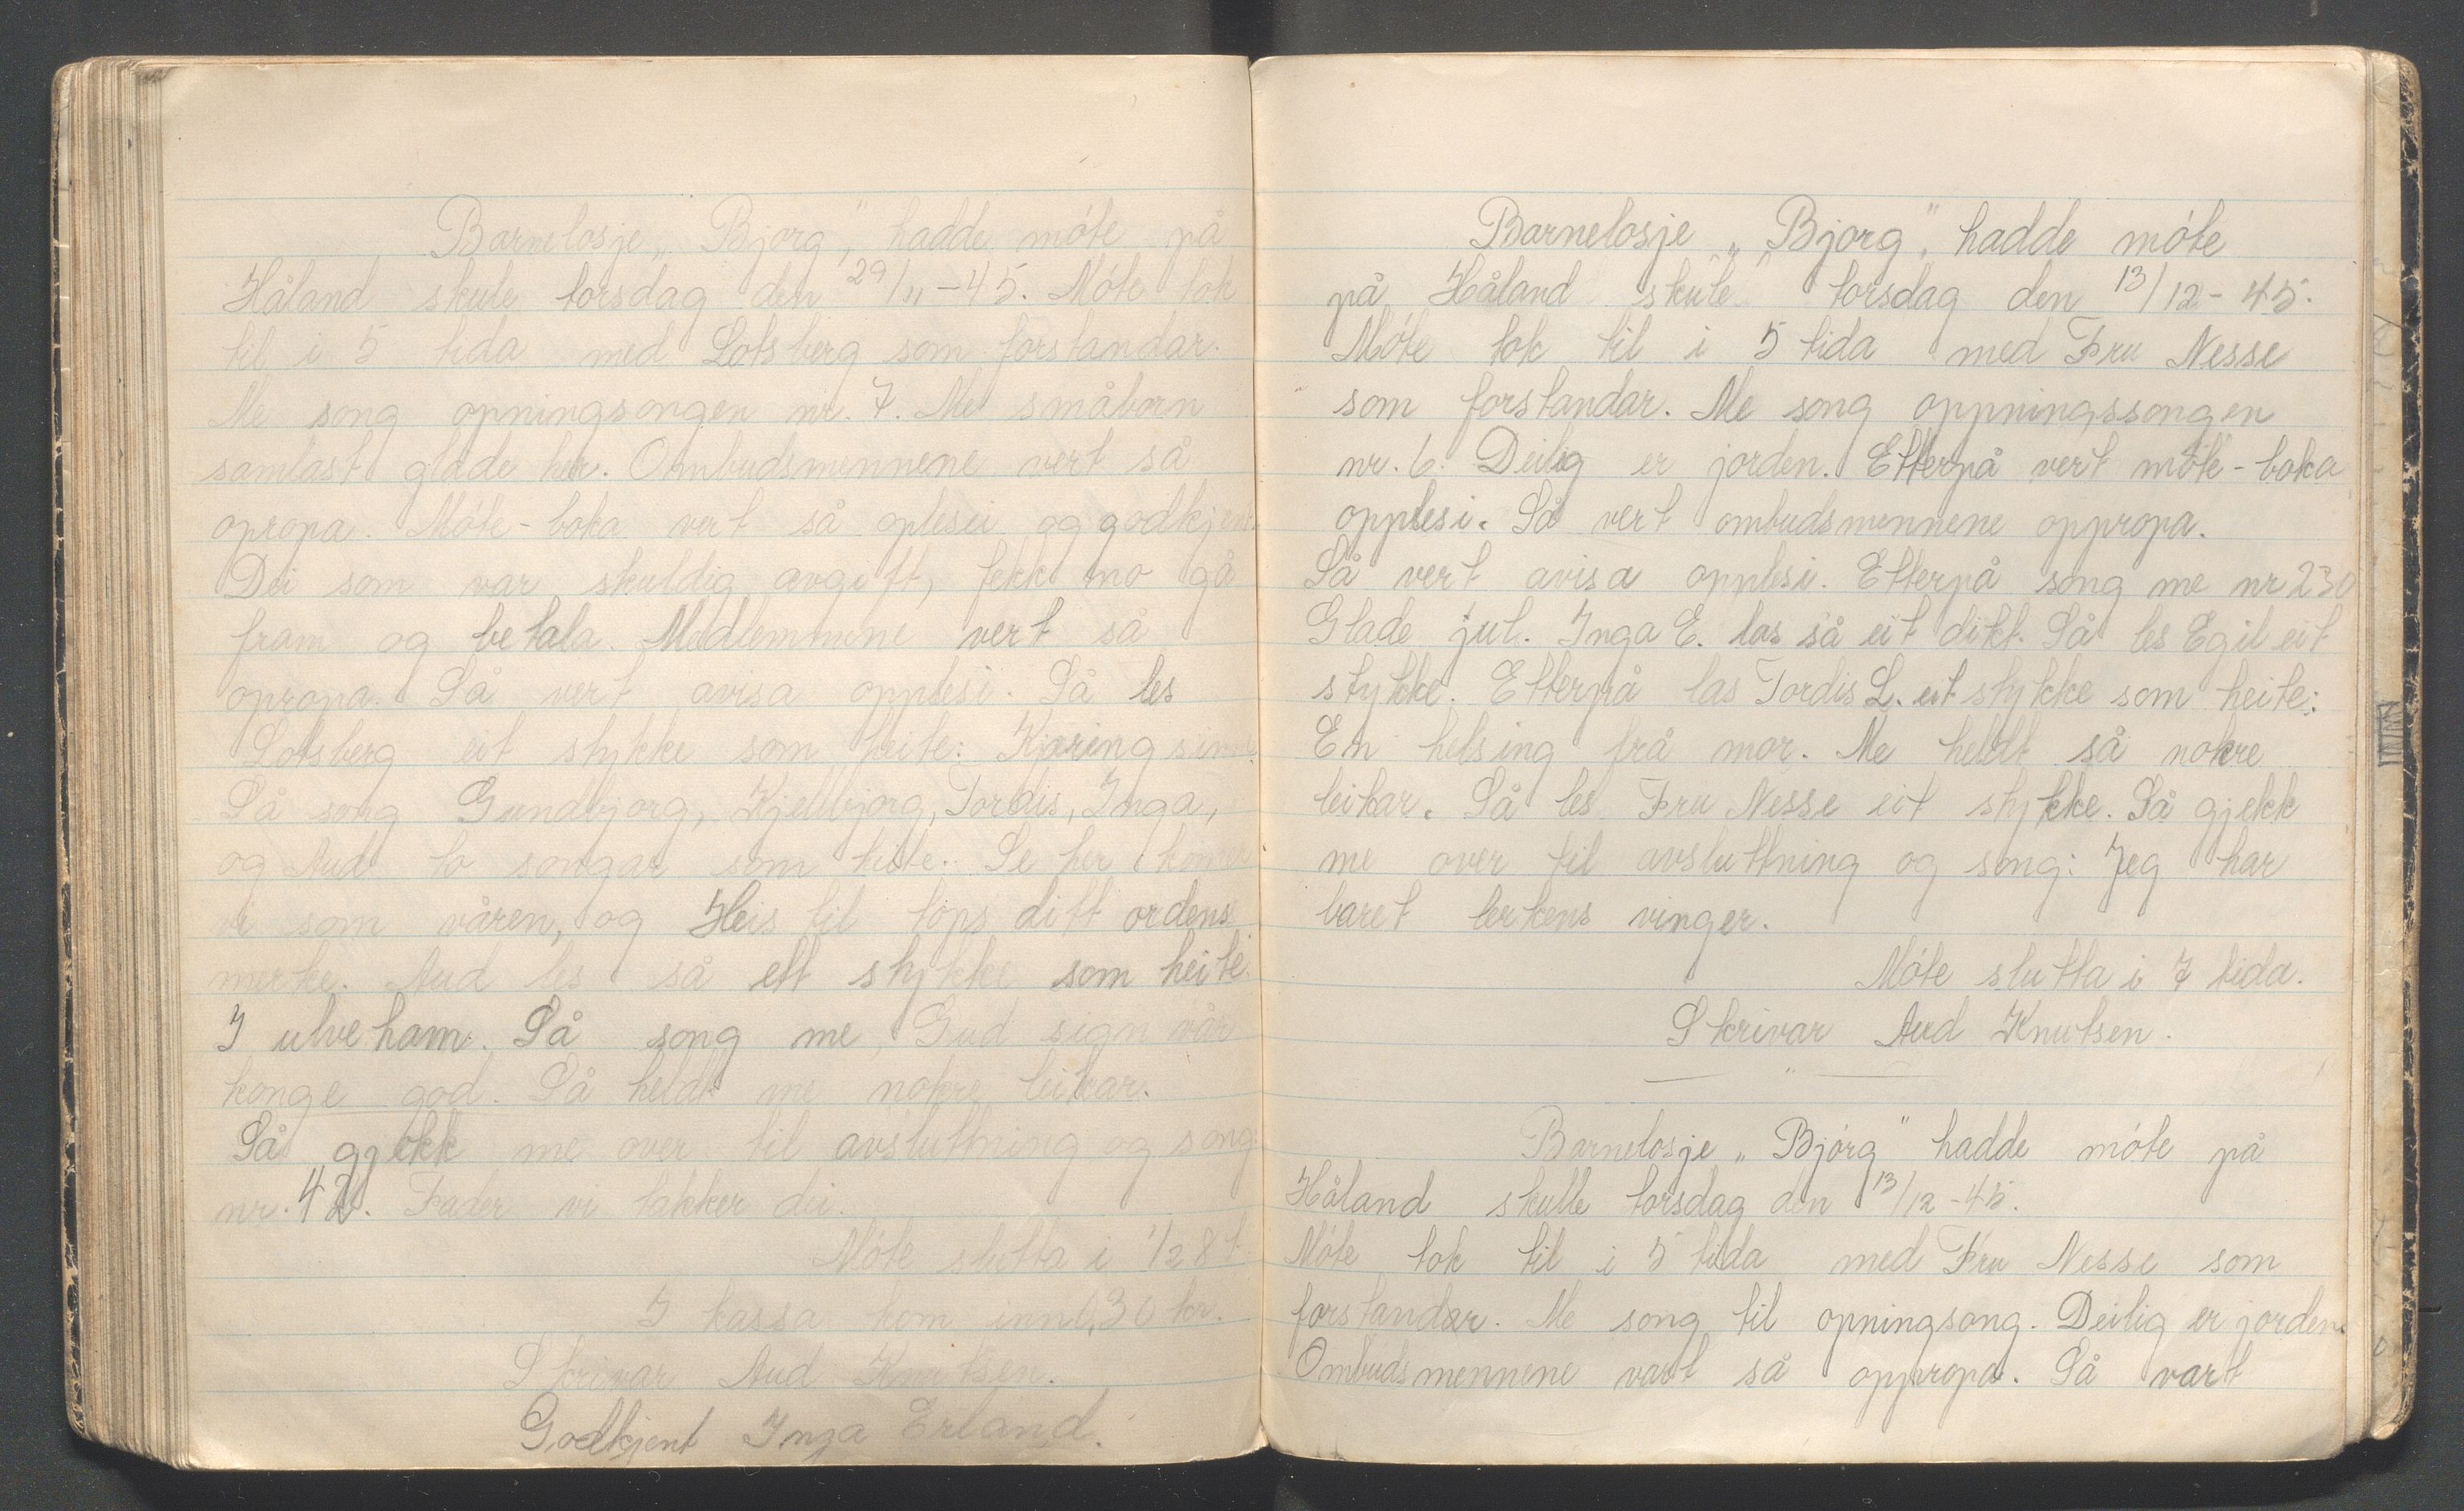 Barnelosje „Bjørg," hadde møte på
Håland skule torsdag den 29/11-45. Møte tok
til i 5 tida med Lotsberg som forstandar.
Me song opningsongen nr. 7. Me småborn
samlast glade her. Ombudsmennene vert så
opropa. Møte-boka vert så oplesei og godkjent.
Dei som var skuldig avgift, fekk no gå
fram og betala. Medlemmene vert så
opropa. Så vert avisa opplesi. Så les
Lotsberg eit stykke som heite: Kjæringsinn.
Så song Gundbjørg, Kjellbjørg, Tordis, Inga,
og Aud to songar som heite: Se her komer
vi som våren, og Heis til tops ditt ordens
merke. Aud les så ett stykke som heite
I ulveham. Så song me, Gud sign vår
konge god. Så heldt me nokre leikar.
Så gjekk me over til avslutning og song:
nr. 42. Fader vi takker dei.
Møte slutta i 1/2 8 t.
I kassa kom inn 6,30 kr.
Skrivar Aud Knutsen.
Godkjent Inga Erland.
Barnelosje „Bjørg," hadde møte
på Håland skule torsdag den 13/12-45.
Møte tok til i 5 tida med Fru Nesse
som forstandar. Me song oppningssongen
nr. 6. Deilig er jorden. Etterpå vert møte-boka
opplesi. Så vert ombudsmennene oppropa.
Så vert avisa opplesi. Etterpå song me nr 230
Glade jul. Inga E. las så eit dikt. Så les Egil eit
stykke. Etterpå las Tordis L. eit stykke som heite:
En helsing frå mor. Me heldt så nokre
leikar. Så les Fru Nesse eit stykke. Så gjekk
me over til avsluttning og song: Jeg har
baret lerkens vinger.
Møte slutta i 7 tida.
Skrivar Aud Knutsen.
Barnelosje „Bjørg" hadde møte på
Håland skulle torsdag den 13/12-45.
Møte tok til i 5 tida med Fru Nesse som
forstandar. Me song til opningsong. Deilig er jorden.
Ombudsmennene vart så oppropa. Så vart